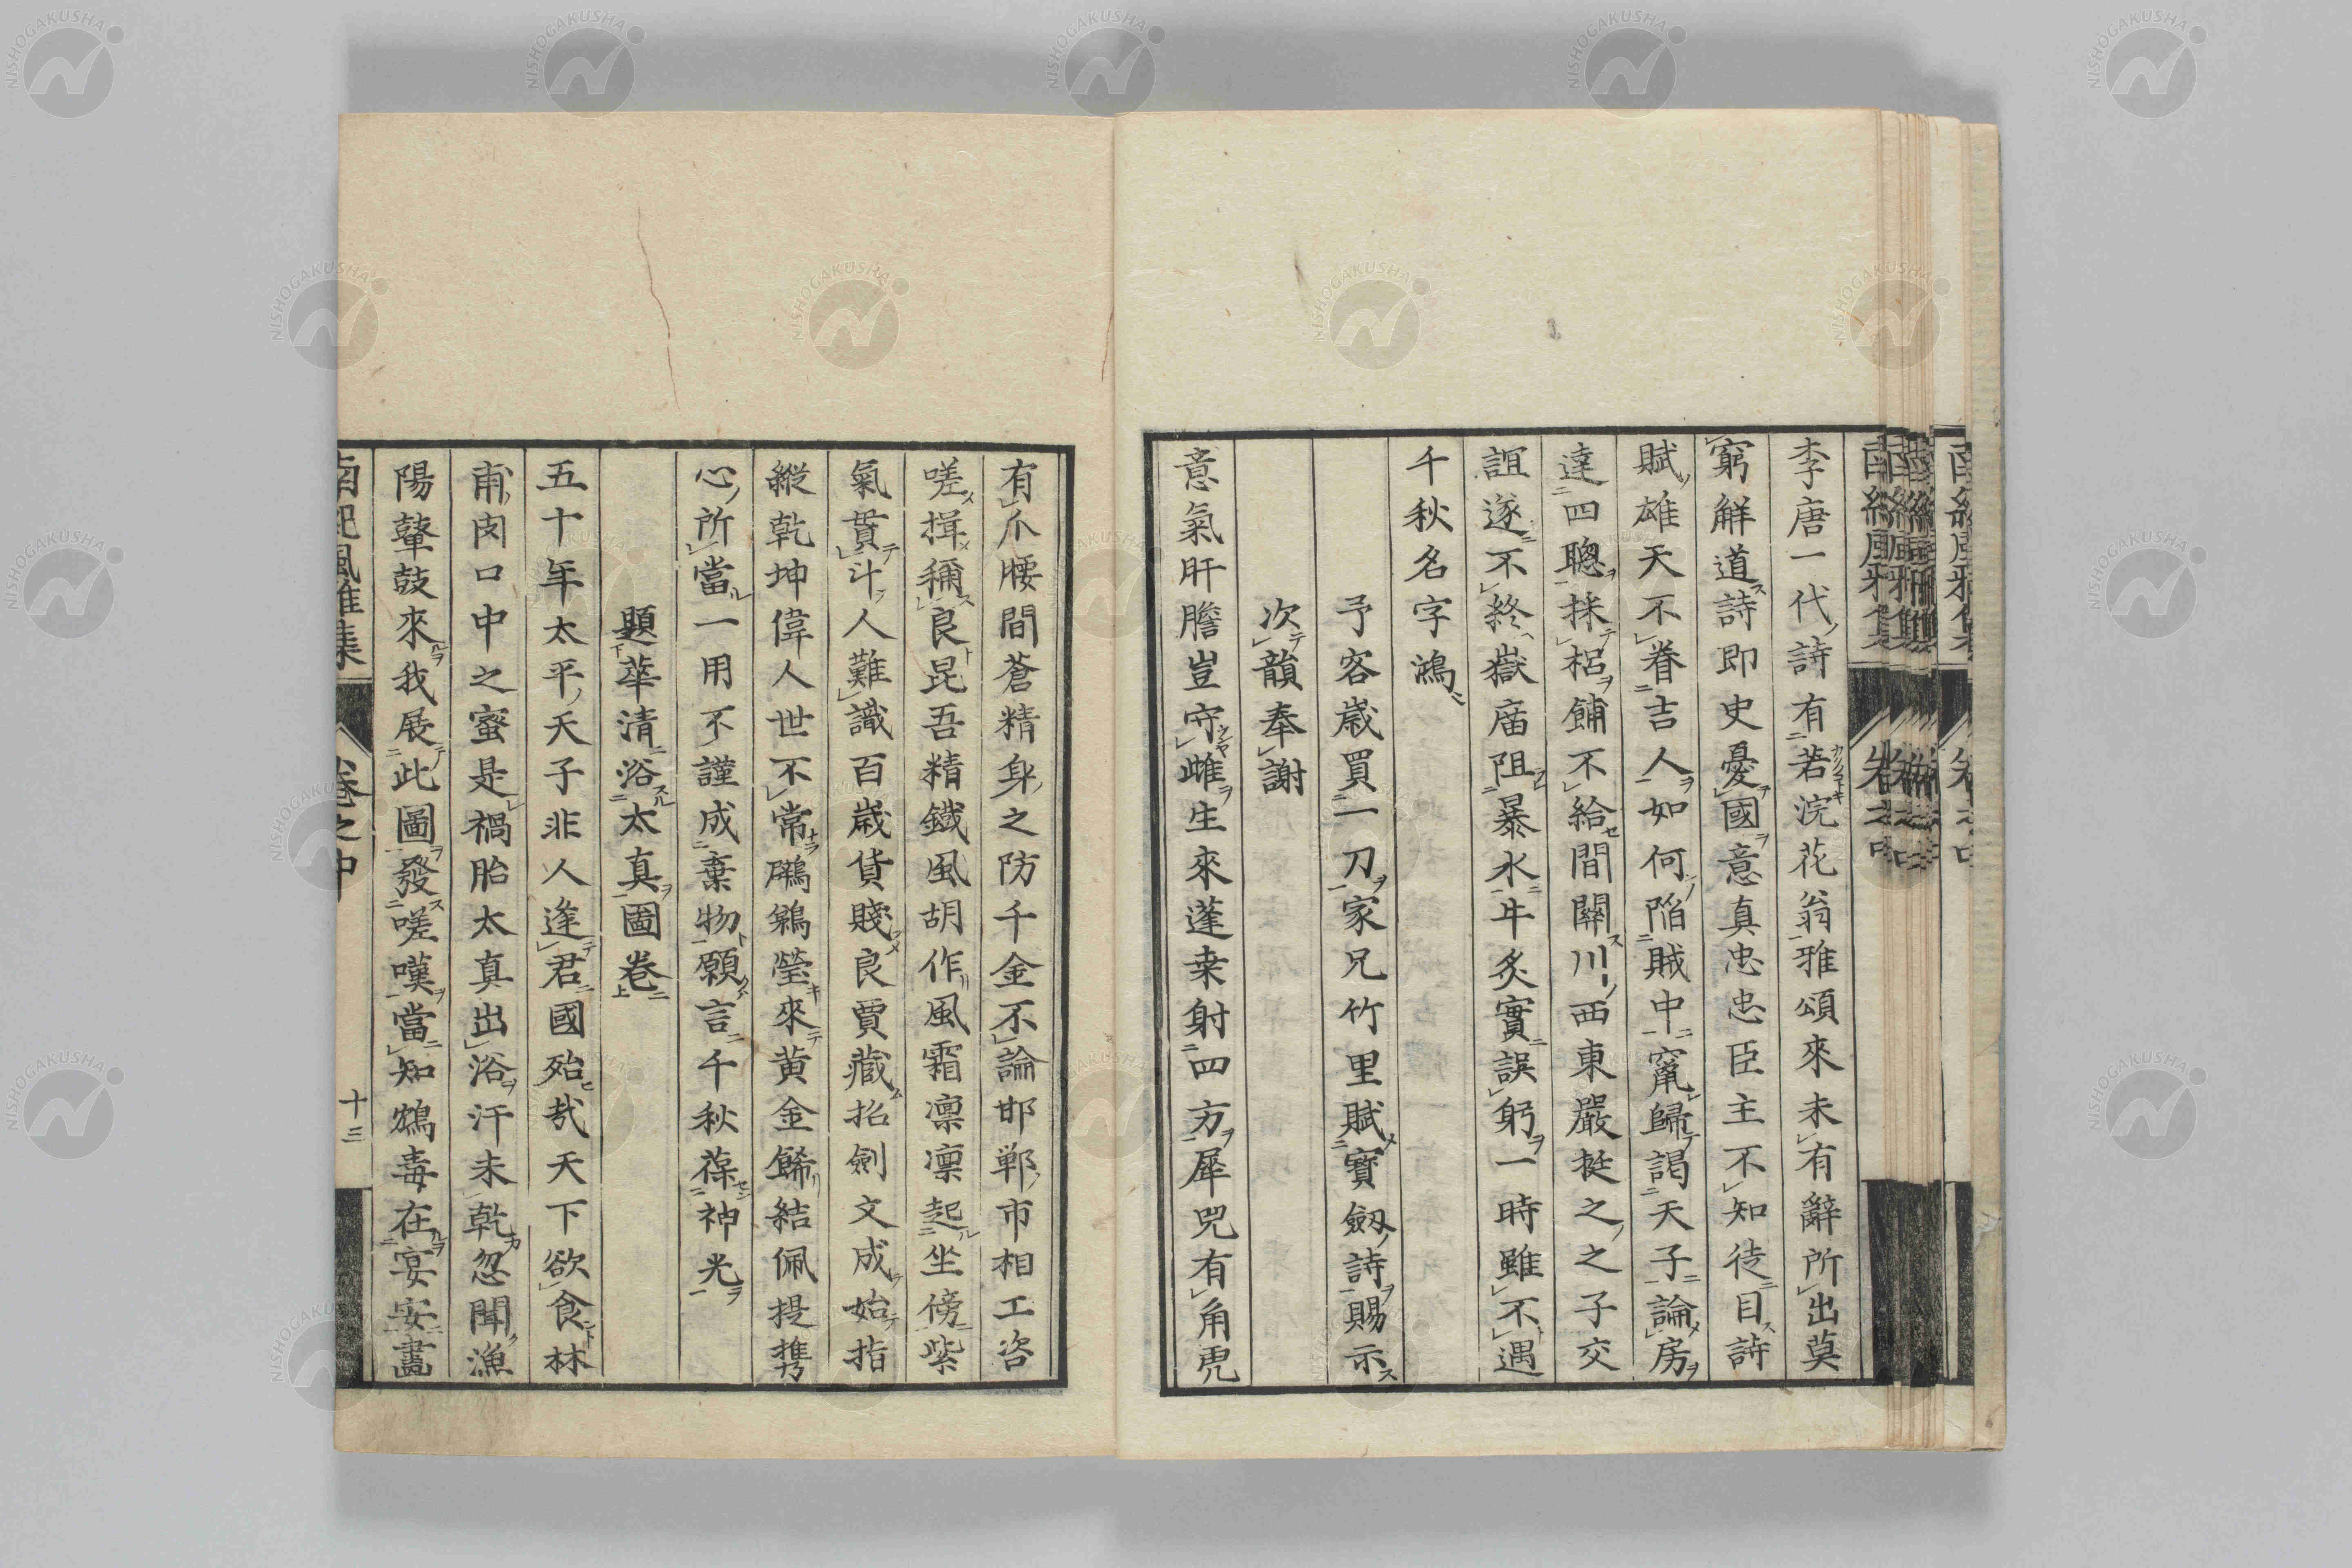 李唐一代詩有若浣花翁雅頌來未有辭所出莫
窮觧道詩即史憂國意真忠忠臣主不知徒目詩
賦雄天不眷吉人如何陷賊中竄歸謁天子論房
達四聰採梠餔不給間關川西東嚴挺之之子交
誼遂不終嶽庿阻暴水牛炙實誤躬一時雖不遇
千秋名字鴻
予客歳買一刀家兄竹里賦寶劔詩賜示
次韻奉謝
意氣肝膽豈守雌生來蓬桒射四方犀兕有角虎
有爪腰間蒼精身之防千金不論邯鄲市相工咨
嗟揖稱良昆吾精鐵風胡作風霜凛凛起坐傍紫
氣貫斗人難識百歳貨賤良賈藏招劍文成始指
縱乾坤偉人世不常鸊鵜瑩來黄金餙結佩提携
心所當一用不謹成棄物願言千秋葆神光
題華清浴太真圖卷
五十年太平天子非人逢君國殆哉天下欲食林
甫肉口中之蜜是禍胎太真出浴汗未乾忽聞漁
陽鼙鼓來我展此圖發嗟嘆當知鴆毒在宴安畫
南紀風雅集
卷之中
十三
NISHOGAKUSHA